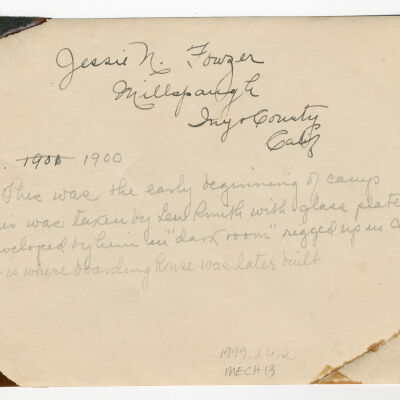 Jessie N. Fowzer
Millspaugh
Inyo County
Calif
. 1900 1900
This was the early beginning of camp
was taken by Lew Smith with glass plate
veloped by him in "dark room" rigged up in c
is where boarding house was later built
1999.24.2
MECH 13